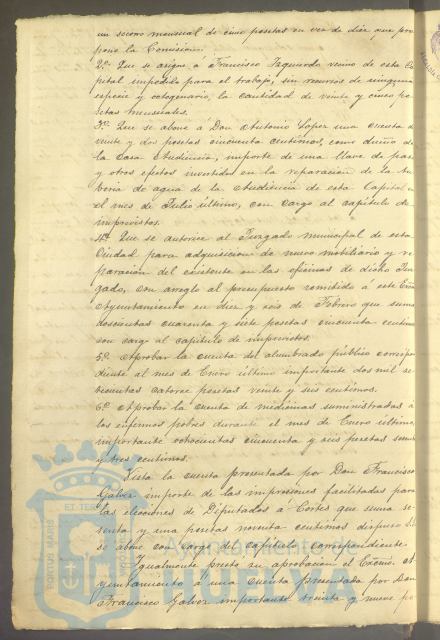 un socorro mensual de cinco pesetas en vez de diez que pro
pone la Comision.
2º Que se asigne á Francisco Izquierdo vecino de esta Ca
pital impedido para el trabajo, sin recursos de ninguna
especie y octogenario, la cantidad de veinte y cinco pe
setas mensuales.
3º Que se abone á Don Antonio Lopez una cuenta de
veinte y dos pesetas cincuenta centimos, como dueño de
la Casa Audiencia, importe de una llave de paso
y otros efectos invertidos en la reparacion de la tu
beria de agua de la Audiencia de esta Capital en
el mes de Julio último, con cargo al capitulo de
imprevistos.
4º Que se autorice al Juzgado municipal de esta
Ciudad para adquisicion de nuevo mobiliario y re
paracion del existente en las oficinas de dicho Juz
gado, con arreglo al presupuesto remitido á este Excmo
Ayuntamiento en diez y seis de Febrero que suma
doscientas cuarenta y siete pesetas cincuenta centimos
con cargo al capitulo de imprevistos.
5º Aprobar la cuenta del alumbrado público correspon
diente al mes de Enero último importante dos mil se
tecientas catorce pesetas veinte y seis centimos.
6º Aprobar la cuenta de medicinas suministradas á
los enfermos pobres durante el mes de Enero último
importante ochocientas cincuenta y seis pesetas
y tres centimos.
Vista la cuenta presentada por Don Francisco
Galvez importe de las impresiones facilitadas para
las elecciones de Diputados á Cortes que suma se
senta y una pesetas noventa centimos dispuso
se abone con cargo al capitulo correspondiente
Igualmente presto su aprobacion el Excmo. A
yuntamiento á una cuenta presentada por Don
Francisco Galvez importante treinta y nueve pe
PORTUS MARIS
ET TER
Ayuntamiento de